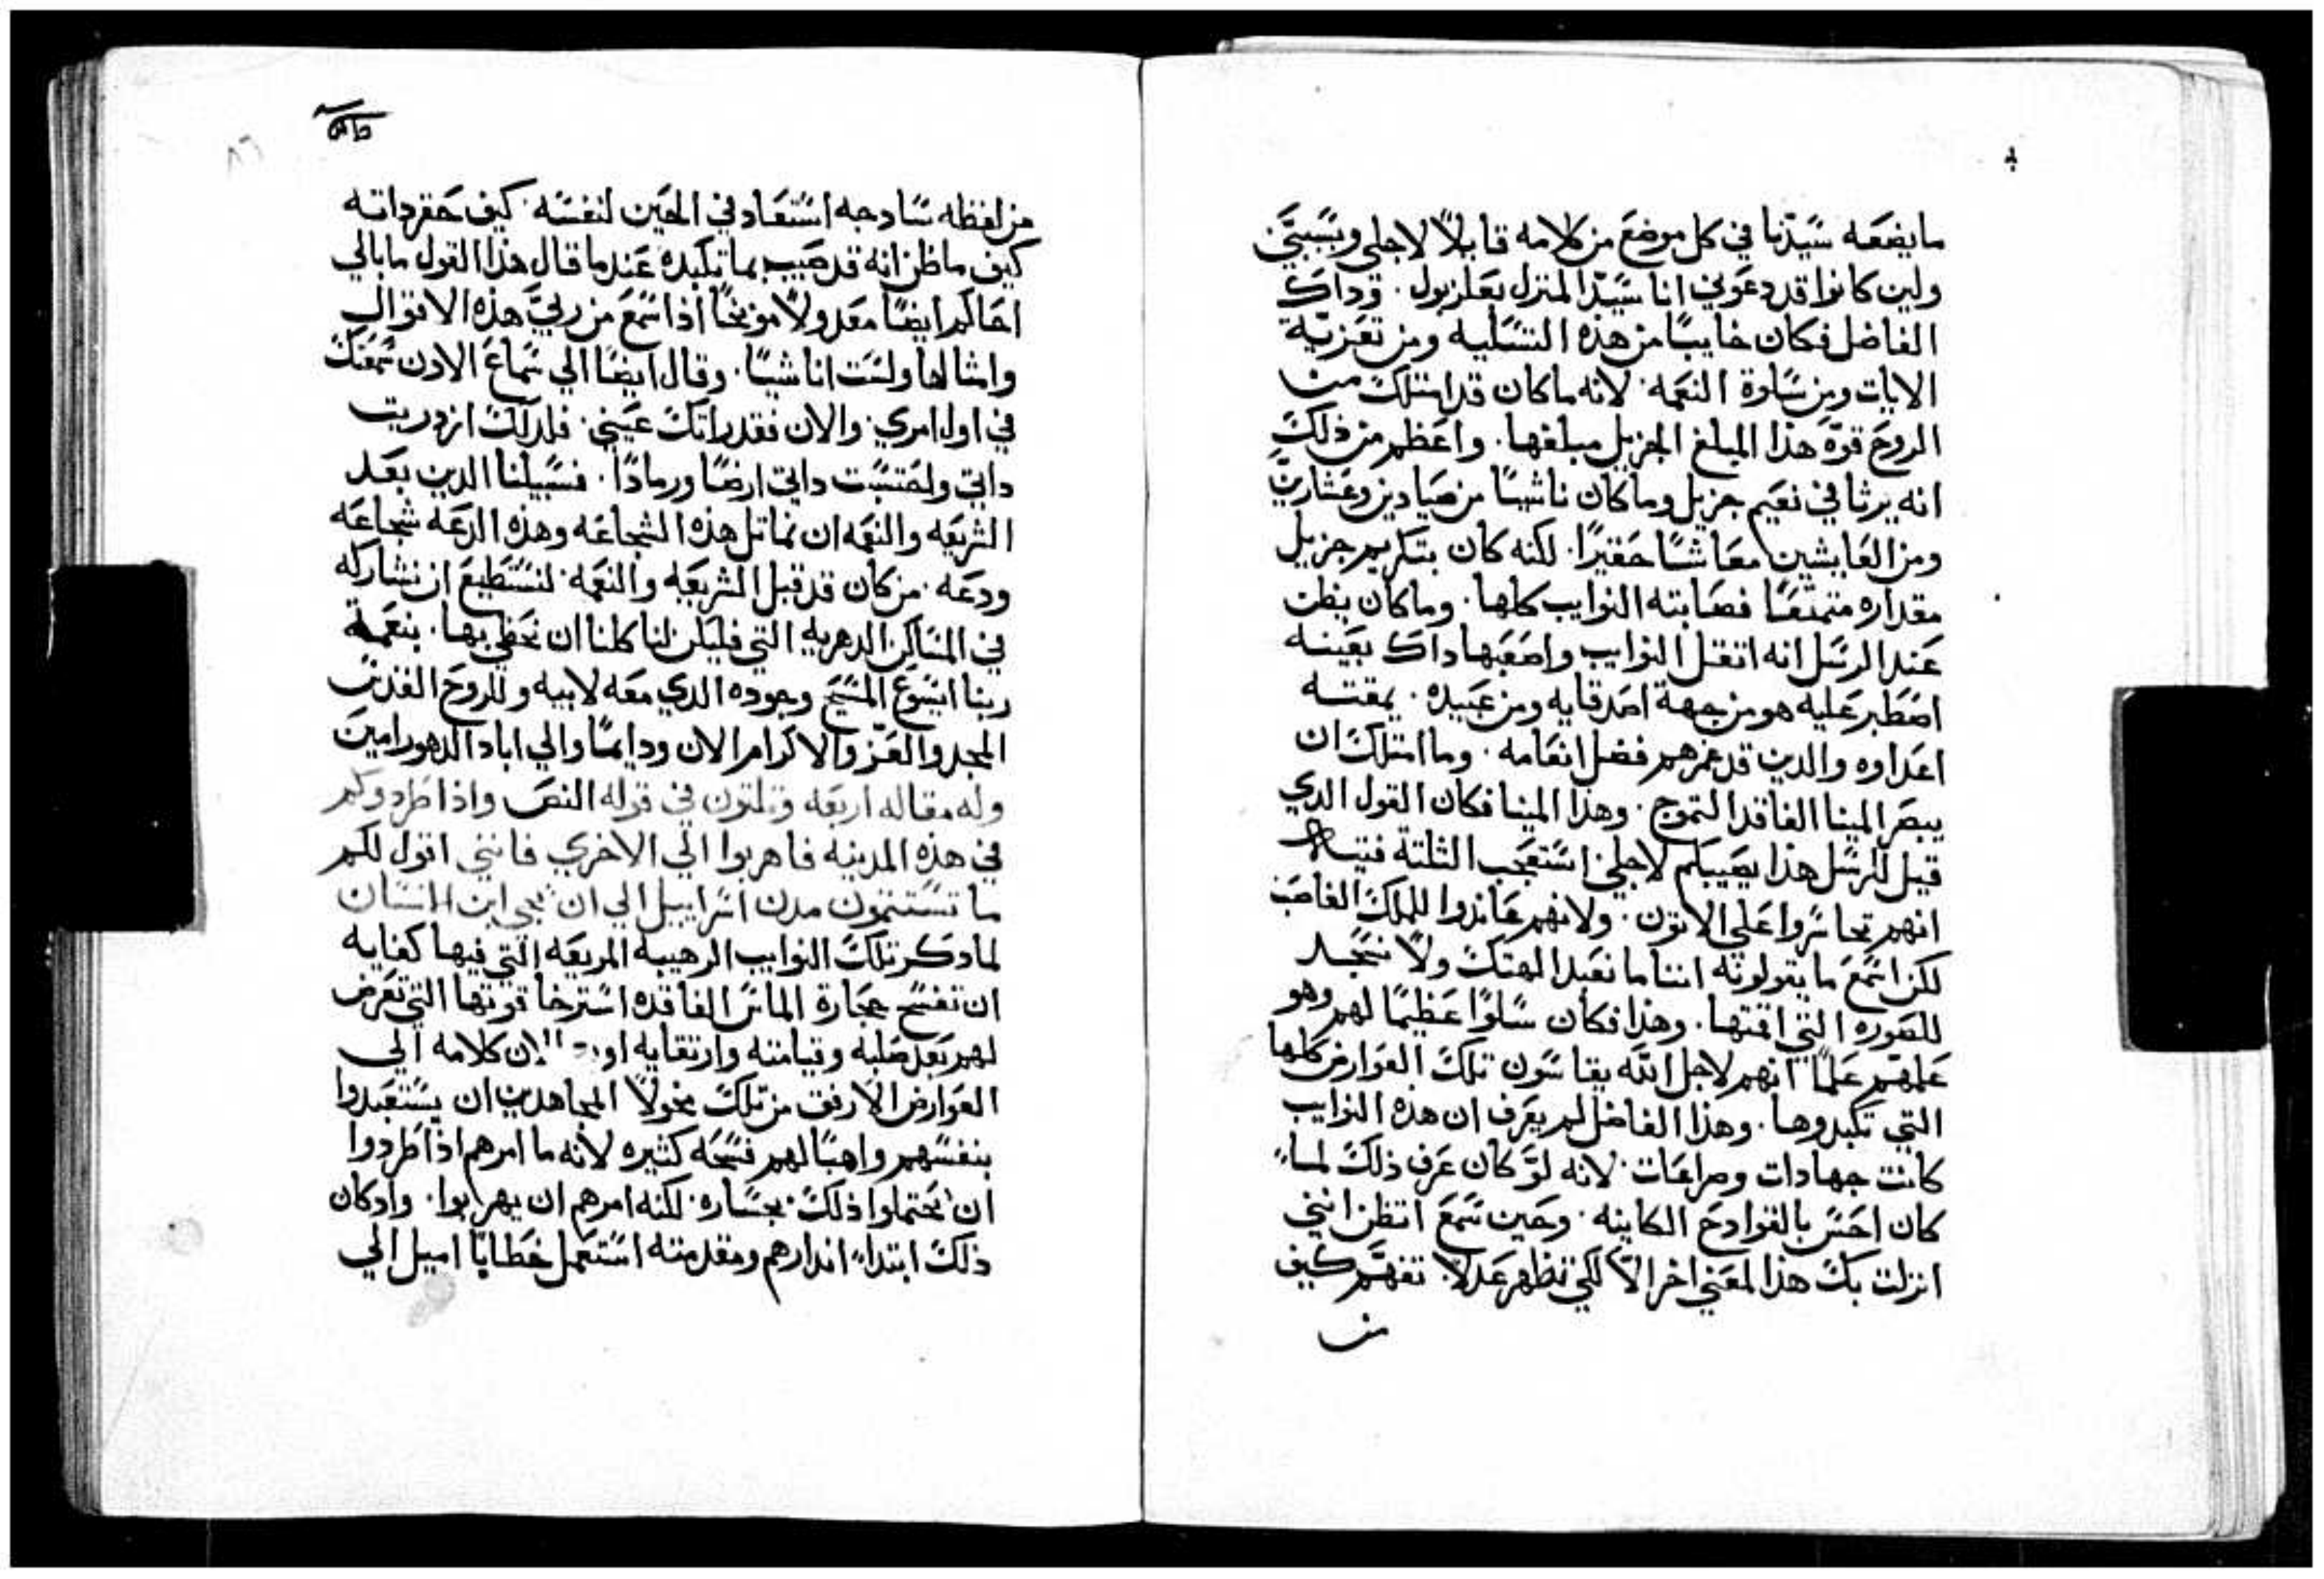 ما يضعه سيدنا في كل موضع من كلامه قايلاً لاجلي وبسببي
ولين كانوا قد دعوني انا سيد المنزل بعلزبول. وداك
الفاضل فكان خايبًا من هذه التسليه ومن تعزية
الايات ومن سادة النعمه. لانه ما كان قد امتلك من
الروح قوة هذا المبلغ الجزيل مبلغها. واعظم من ذلك
انه يرثا في نعيم جزيل وما كان ناشيًا من صيادين وعشارين
ومن العايشين معاشًا حقيرًا. لكنه كان بتكريم جزيل
مقداره متمتعًا فصابته النوايب كلها. وما كان يظن
عند الرسل انه اتقل النوايب واصعبها داك بعينه
اصطبر عليه هو من جهة اصدقايه ومن عبيده. يمقته
اعداوه والدين قد غمرهم فضل انعامه. وما امتلك ان
يبصر المينا الفاقد التموج. وهذا المينا فكان القول الدي
قيل للرسل هذا يصيبكم لاجلي استعجب الثلثة فتيه
انهم تجاسروا علي الاتون. ولانهم عاندوا للملك الغاصب
لكن اسمع ما يقولونه اننا ما نعبد الهتك ولا نسجد
للصوره التي اقمتها. وهذا فكان سلوًا عظيمًا لهم وهو
علمهم علمًا انهم لاجل الله يقاسون تلك العوارض كلها
التي تكبدوها. وهذا الفاضل لم يعرف ان هذه النوايب
كانت جهادات وصراعات. لانه لو كان عرف ذلك لما
كان احس بالفوادح الكاينه. وحين سمع اتظن انني
انزلت بك هذا لمعني اخر الاّ لكي تظهر عدلاً. تفهّم كيف
من
٨٦
من لفظه سادجه استعاد في الحين لنفسه. كيف حقر داته
كيف ما ظن انه قد صيب بما تكبده عندما قال هذا القول ما بالي
احاكم ايضًا معدولاً موبخًا اذا اسمع من ربي هذه الاقوال
وامثالها ولست انا شيًا. وقال ايضًا الي سماع الادن سمعتك
في اول امري. والان فقد راتك عيني. فلدلك ازدريت
داتي واحتسبت داتي ارضًا ورمادًا. فسبيلنا الدين بعد
الشريعه والنعمه ان نماتل هذه الشجاعه وهذه الدعه شجاعه
ودعه. من كان قد قبل الشريعه والنعمه. لنستطيع ان نشاركه
في المساكن الدهريه التي فليكن لنا كلنا ان نحظي بها. بنعمة
ربنا ايسوع المسيح وجوده الدي معه لابيه وللروح القدس
المجد والعز والاكرام الان ودايمًا والي اباد الدهور امين
وله مقاله اربعه وتلتون في قوله النص واذا طردوكم
في هذه المدينه فاهربوا الي الاخري فانني اقول لكم
ما تستتمون مدن اسراييل الي ان يجي ابن الانسان
لما دكر تلك النوايب الرهيبه المريعه التي فيها كفايه
ان تفسح حجارة الماس الفاقده استرخا قوتها التي تعرض
لهم بعد صلبه وقيامته وارتقايه كلامه الي
العوارض الارفق من تلك مخولاً المجاهدين ان يستعبدوا
بنفسهم واهبًا لهم فسحه كثيره لانه ما امرهم اذا طردوا
ان يحتملوا ذلك بجساره. لكنه امرهم ان يهربوا. واد كان
ذلك ابتداء اندارهم ومقدمته استعمل خطابًا اميل الي